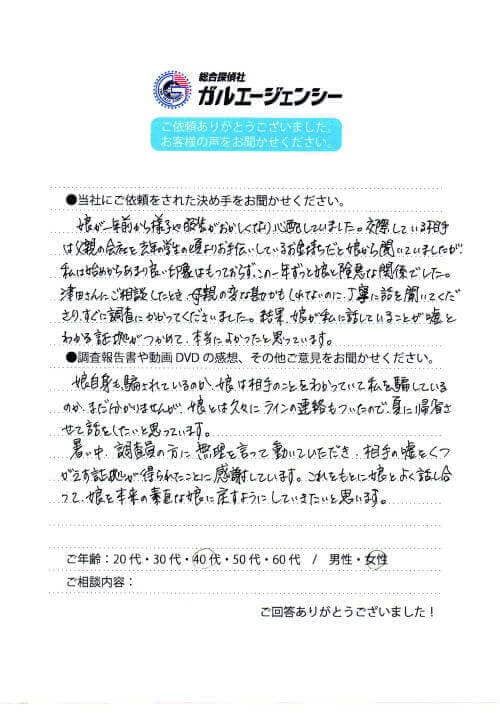 総合探偵社
ガルエージェンシー
ご依頼ありがとうございました。
お客様の声をお聞かせください。
●当社にご依頼をされた決め手をお聞かせください。
娘が一年前から様子や服装がおかしくなり心配していました。交際している相手
は父親の会社を去年の学生の頃よりお手伝いしているお金持ちだと娘から聞いていましたが、
私は始めからあまり良い印象はもっておらず、この一年ずっと娘と険悪な関係でした。
津田さんにご相談したとき、母親の変な勘かもしれないのに、丁寧に話を聞いてくだ
さり、すぐに調査にかかってくださいました。結果、娘が私に話していることが嘘と
わかる証拠がつかめて、本当によかったと思っています。
●調査報告書や動画DVDの感想、その他ご意見をお聞かせください。
娘自身も騙されているのか、娘は相手のことをわかっていて私を騙している
のか、まだ分かりませんが、娘とは久々にラインの連絡もついたので、夏に帰省さ
せて話をしたいと思っています。
暑い中、調査員の方に無理を言って動いていただき、相手の嘘をくつ
がえす証拠が得られたことに感謝しています。これをもとに娘とよく話し合
って、娘を本来の素直な娘に戻すようにしていきたいと思います。
ご年齢：20代・30代・40代・50代・60代 / 男性・女性
ご相談内容：
ご回答ありがとうございました！